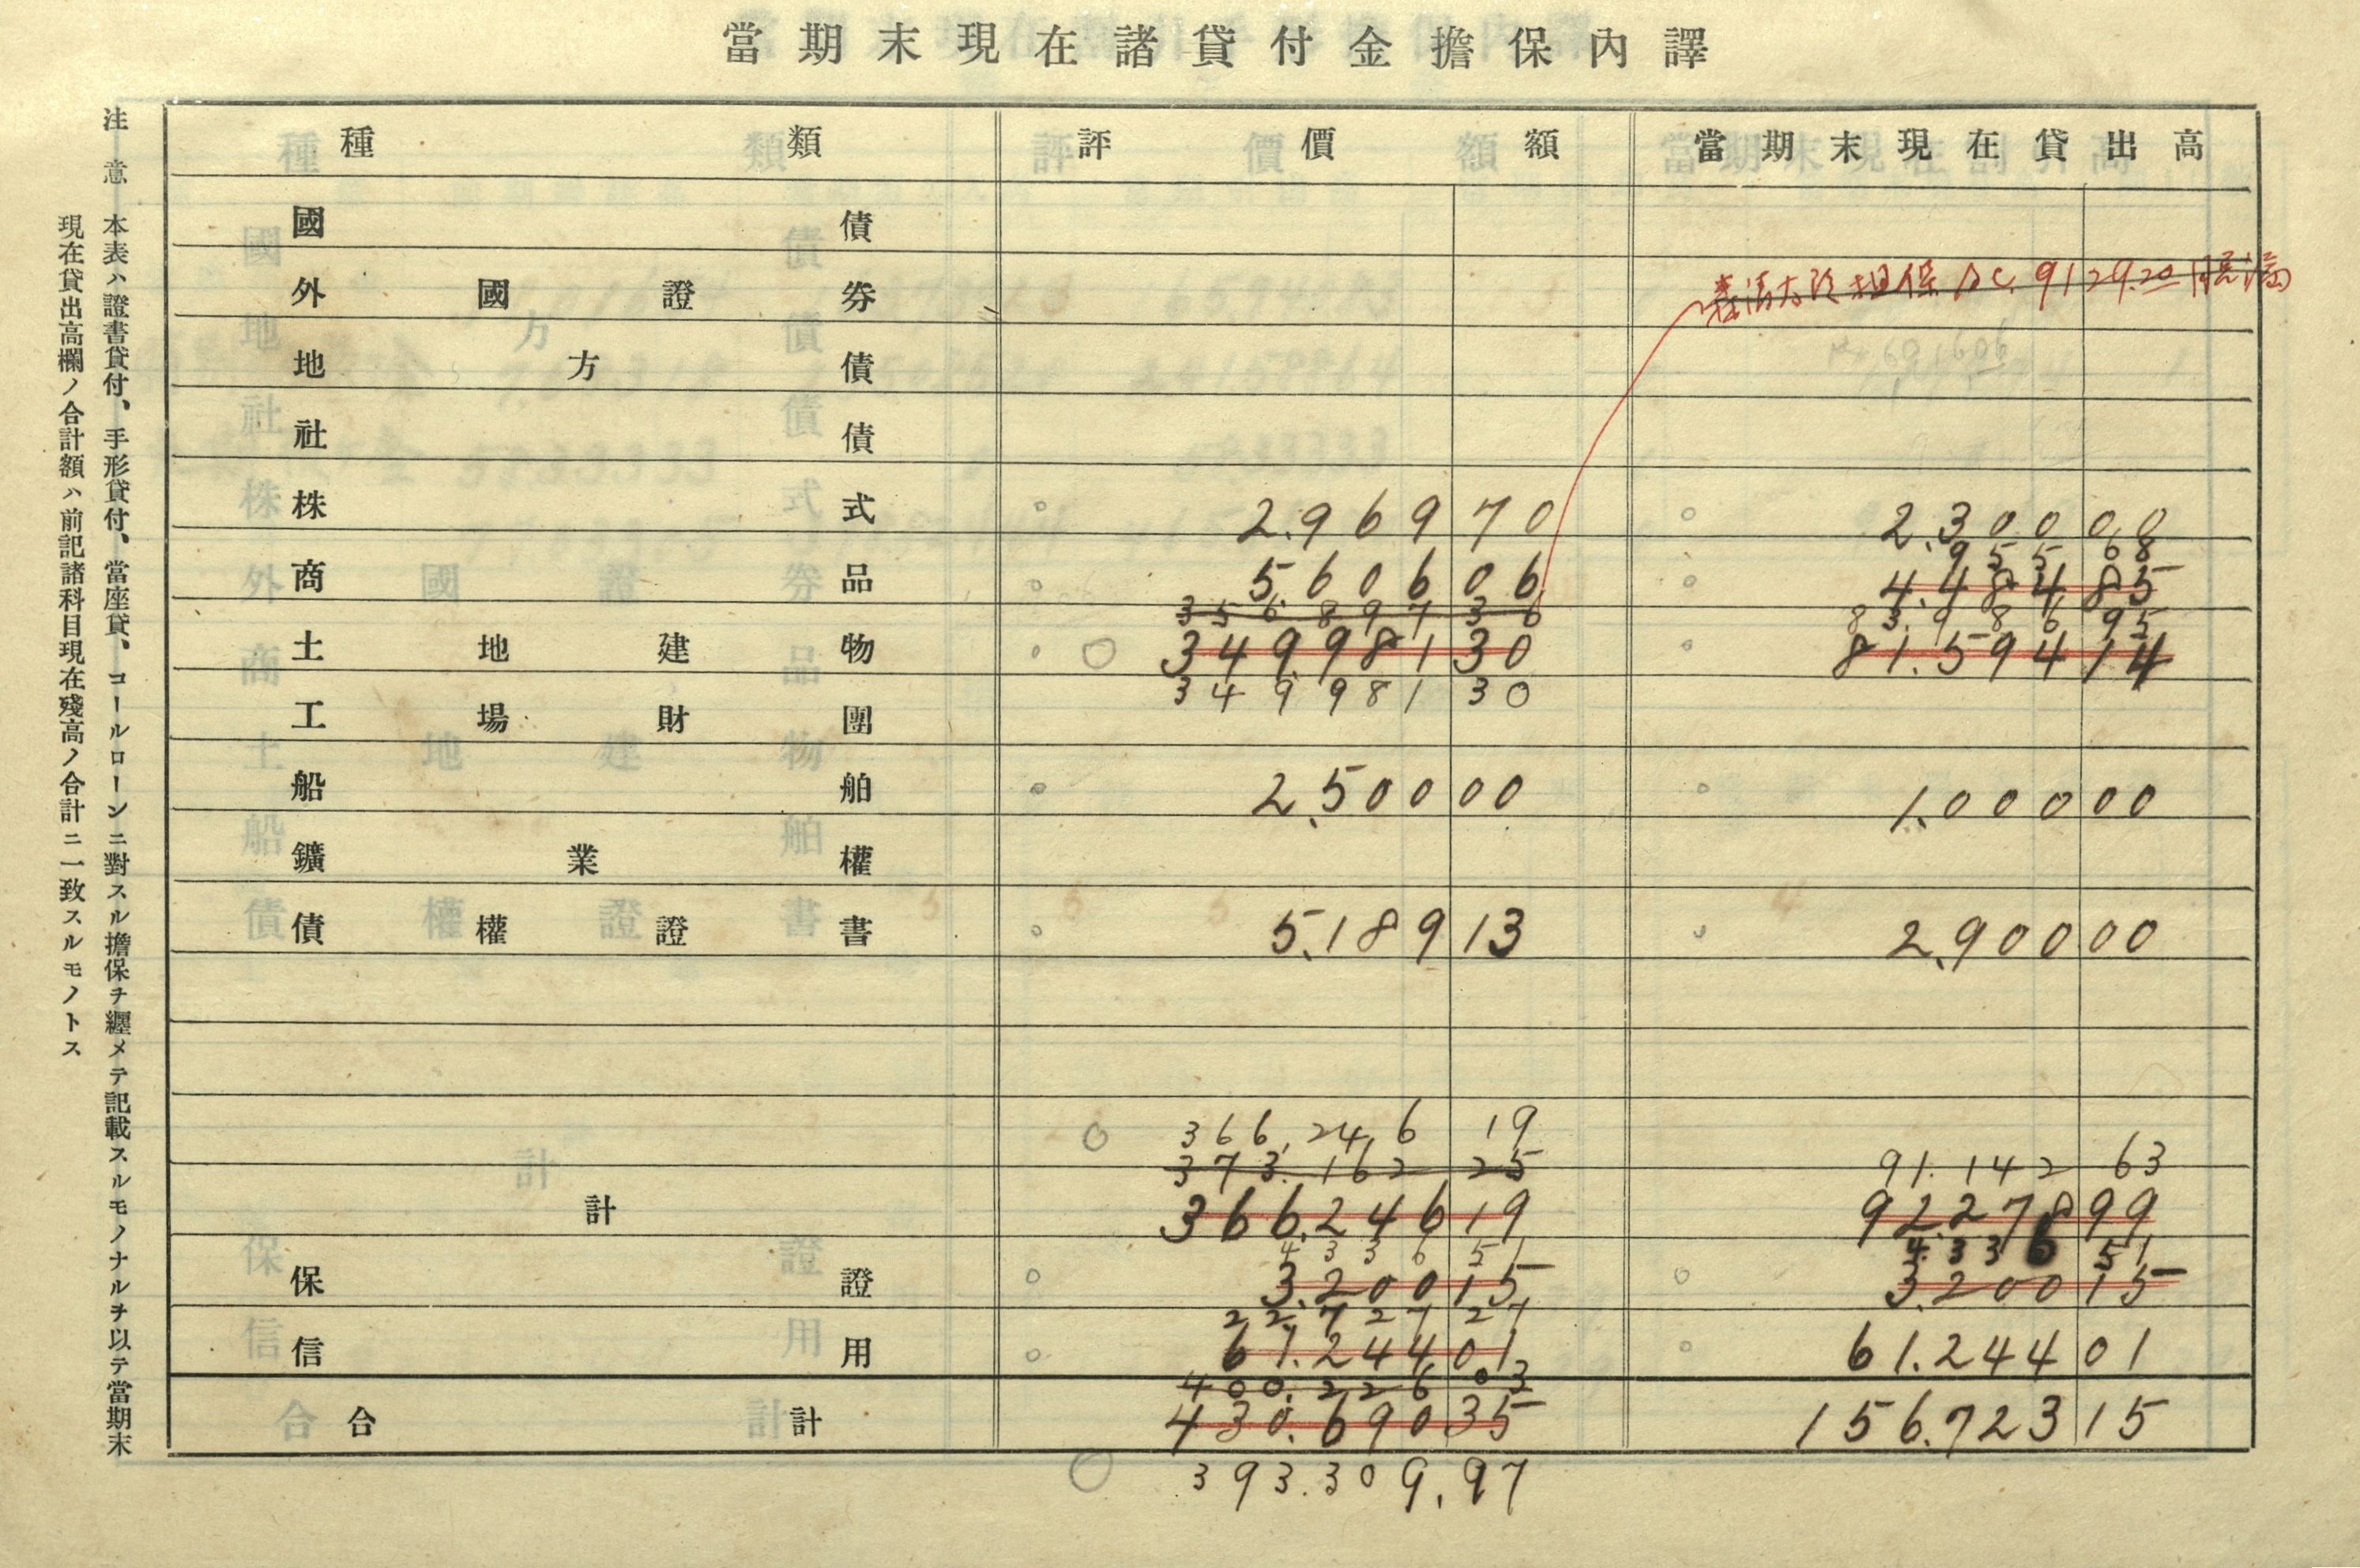 當期末現在諸貸付金擔保內譯
注意 本表ハ證書貸付、手形貸付、當座貸、コールローンニ對スル擔保ヲ纒メテ記載スルモノナルヲ以テ當期末
現在貸出高欄ノ合計額ハ前記諸科目現在殘高ノ合計ニ一致スルモノトス
種類 評價額 當期末現在貸出高
國債
外國證券
担保 9129.20
地方債
社債
株式 2.969 70 2.300 00
955 68
商品 5.606 06 4.484 85
356.897 36 83.986 95
土地建物 349.981 30 81.594 14
349 981 30
工場財團
船舶 2.500 00 1.000 00
鑛業權
債權證書 5.189 13 2.900 00
366.246 19
373.162 25 91.142 63
計 366.246 19 92.278 99
4336 51 4.336 51
保證 3.200 15 3.200 15
22.727 27
信用 61.244 01 61.244 01
400.226 03
合計 430.690 35 156.723 15
393.309.97